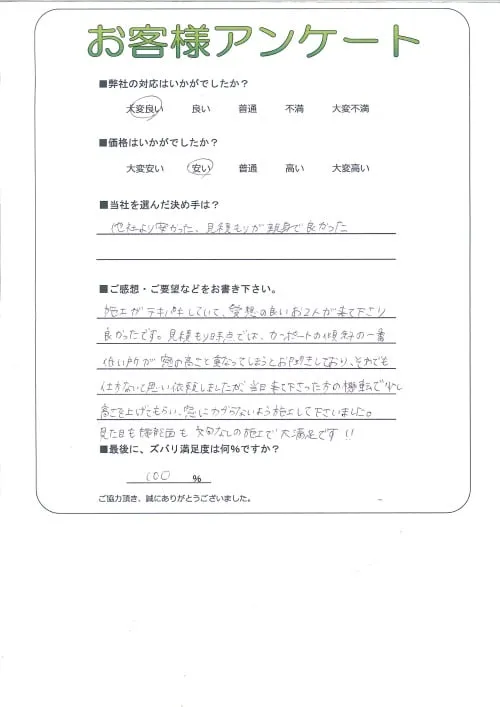 お客様アンケート
■弊社の対応はいかがでしたか？
大変良い 良い 普通 不満 大変不満
■価格はいかがでしたか？
大変安い 安い 普通 高い 大変高い
■当社を選んだ決め手は？
他社より安かった、見積もりが親身で良かった
■ご感想・ご要望などをお書き下さい。
施工がテキパキしていて、愛想の良いお2人が来て下さり
良かったです。見積もり時点では、カーポートの傾斜の一番
低い所が窓の高さと重なってしまうとお聞きしており、それでも
仕方ないと思い依頼しましたが、当日来て下さった方の機転で少し
高さを上げてもらい、窓にかぶらないよう施工して下さいました。
見た目も機能面も文句なしの施工で大満足です!!
■最後に、ズバリ満足度は何％ですか？
100 %
ご協力頂き、誠にありがとうございました。